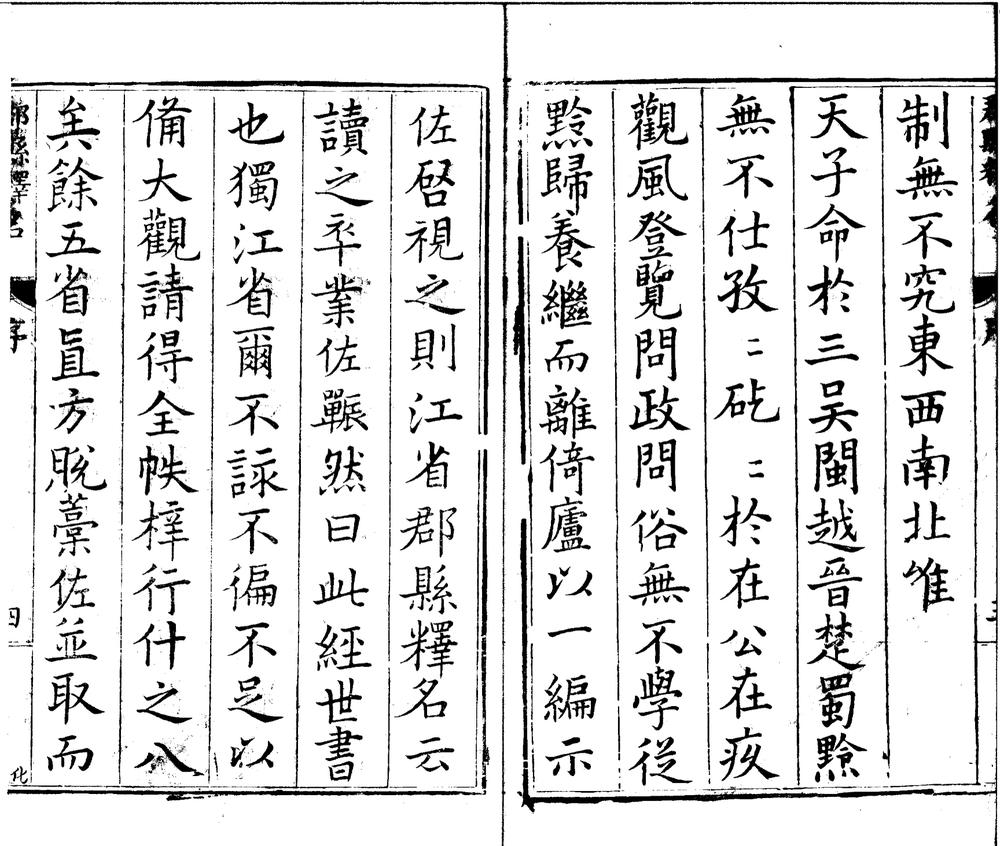 制無不究東西南北唯
天子命於三吴閩越晉楚蜀黔
無不仕孜〻矻〻於在公在疚
觀風登覽問政問俗無不學從
黔歸養繼而離倚廬以一編示
佐啓視之則江省郡縣釋名云
讀之卒業佐囅然曰此經世書
也獨江省爾不詠不徧不足以
備大觀請得全帙梓行什之八
矣餘五省直方脫藁佐並取而
郡縣釋名
序
四